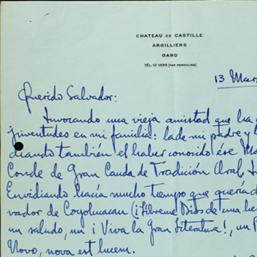 CHATEAU DE CASTILLE
ARGILLIERS
GARD
13 Mar
Querido Salvador:
Invocando una vieja amistad que ha
juventudes en mi familia: la de mi padre y l
diando también el haber conocido ése Ma
Conde de Gran Cauda de Tradición Oral,
Envidiando hacía mucho tiempo que quería
vador de Coyohuacan (¡Líbreme Dios de una he
un saludo, un ¡Viva la Gran Literatura!, un
Novo, nova est lucem.